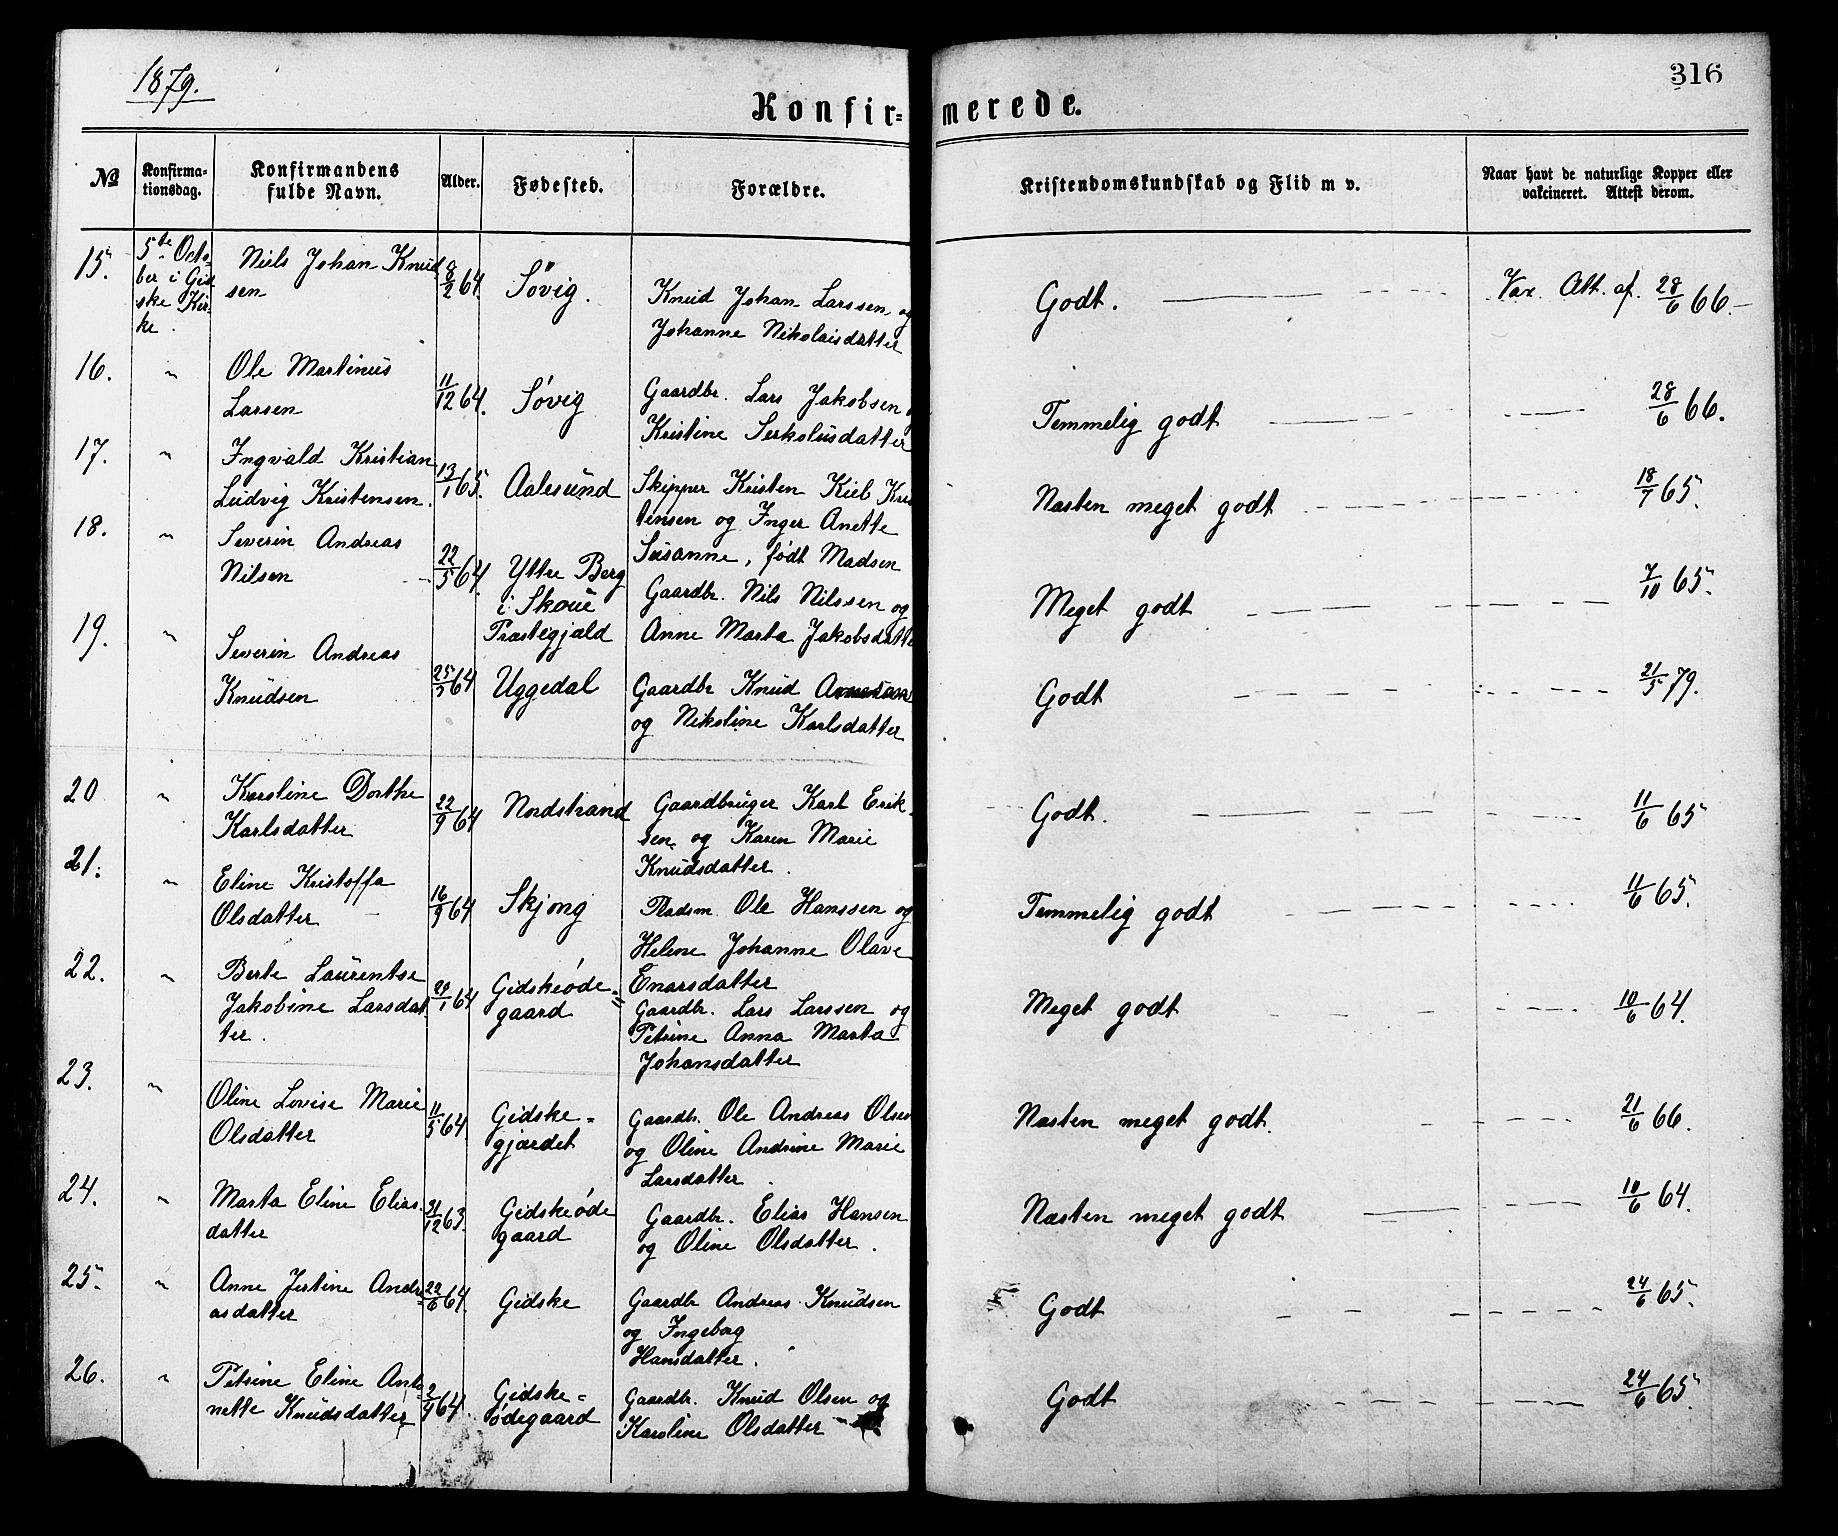 1879.
316
Konfir= merede.
№ Konfirma= tionsdag. Konfirmandens fulde Navn. Alder. Fødested. Forældre. Kristendomskundskab og Flid m v. Naar havt de naturlige Kopper eller vakcineret. Attest derom.
15. 5te Octo- Niels Johan Knud
ber i Gid sen 8/2 64. Søvig. Knud Johan Larssen og Godt. Vax. Att. af. 28/6 66.
ske Kir- Johanne Nikolaisdatter
ke.
16. " Ole Martinus
Larsen 11/12 64. Søvig Gaardbr. Lars Jakobsen Temmelig godt 28/6 66.
Kristine Serkolusdatter
17. " Ingvald Kristian
Ludvig Kristensen. 13/1 65. Aalesund Skipper Kristen Kieb Kris Næsten meget godt 18/7 65.
tensen og Inger Anette
Susanne, født Madsen
18. " Severin Andreas
Nilsen 22/5 64. Yttre Berg Gaardbr. Nils Nilssen og Meget godt 7/10 65.
i Skoue
Præstegjæld Anne Marta Jakobsdatte
19. " Severin Andreas
Knudsen 64 Uggedal Gaardbr Knud Godt 21/5 79.
og Nikoline Karlsdatter
20 " Karoline Dorthe
Karlsdatter 22/9 64 Nordstrand Gaardbruger Karl Erik- Godt. 11/6 65
sen og Karen Marie
Knudsdatter.
21. " Eline Kristoffa
Olsdatter 16/9 64 Skjong Pladsm. Ole Hanssen og Temmelig godt 11/6 65.
Helene Johanne Olave
Enarsdatter
22. " Berte Laurentse
Jakobine Larsdat 29/1 64 Gidskeøde= Gaardbr. Lars Larssen og Meget godt 10/6 64.
ter. gaard Petrine Anna Marta
Johansdatter
23. " Oline Lovise Marie
Olsdatter 11/5 64. Gidske= Gaardbr. Ole Andreas Olsen Næsten meget godt. 21/6 66.
gjærdet og Oline Andrine Marie
Larsdatter.
24. " Marta Eline Elias
datter 31/12 63. Gidskeøde Gaardbr. Elias Hansen Næsten meget godt 10/6 64.
gaard og Oline Olsdatter.
25. " Anne Jertine Andre
asdatter 22/6 64. Gidske Gaardbr Andreas Knudsen Godt 24/6 65.
og Ingeborg
Hansdatter.
26. " Petrine Eline Anto
nette Knudsdatter 2/9 64. Gidske= Gaardbr. Knud Olsen og Godt 24/6 65.
ødegaard Karoline Olsdatter